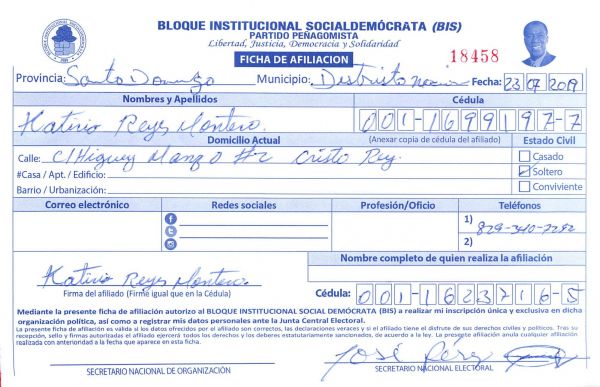 BLOQUE INSTITUCIONAL SOCIALDEMÓCRATA (BIS)
PARTIDO PEÑAGOMISTA
Libertad, Justicia, Democracia y Solidaridad
FICHA DE AFILIACION
18458
Provincia: Santo Domingo Municipio: Distristo Fecha: 23 07 2019
Nombres y Apellidos Cédula
Katirio Reyes Montero. 001-1699197-7
Domicilio Actual (Anexar copia de cédula del afiliado) Estado Civil
Calle: C/Higuey Manz 0 #2 Cristo Rey. Casado
#Casa / Apt. / Edificio: Soltero
Barrio / Urbanización: Conviviente
Correo electrónico Redes sociales Profesión/Oficio Teléfonos
1) 829-340-7292
2)
Nombre completo de quien realiza la afiliación
Katirio Reyes Montero.
Firma del afiliado (Firme igual que en la Cédula) Cédula: 001-1623716-5
Mediante la presente ficha de afiliación autorizo al BLOQUE INSTITUCIONAL SOCIAL DEMÓCRATA (BIS) a realizar mi inscripción única y exclusiva en dicha
organización política, así como a registrar mis datos personales ante la Junta Central Electoral.
La presente ficha de afiliación es válida si los datos ofrecidos por el afiliado son correctos, las declaraciones veraces y si el afiliado tiene el disfrute de sus derechos civiles y políticos. Tras su
recepción, sello y firmas autorizadas el afiliado ejercerá todos los derechos y los deberes estatutariamente sancionados, de acuerdo a la ley. La presente afiliación anula cualquier afiliación
realizada con anterioridad a la fecha que aparece en esta ficha.
José Pérez
SECRETARIO NACIONAL DE ORGANIZACIÓN SECRETARIO NACIONAL ELECTORAL